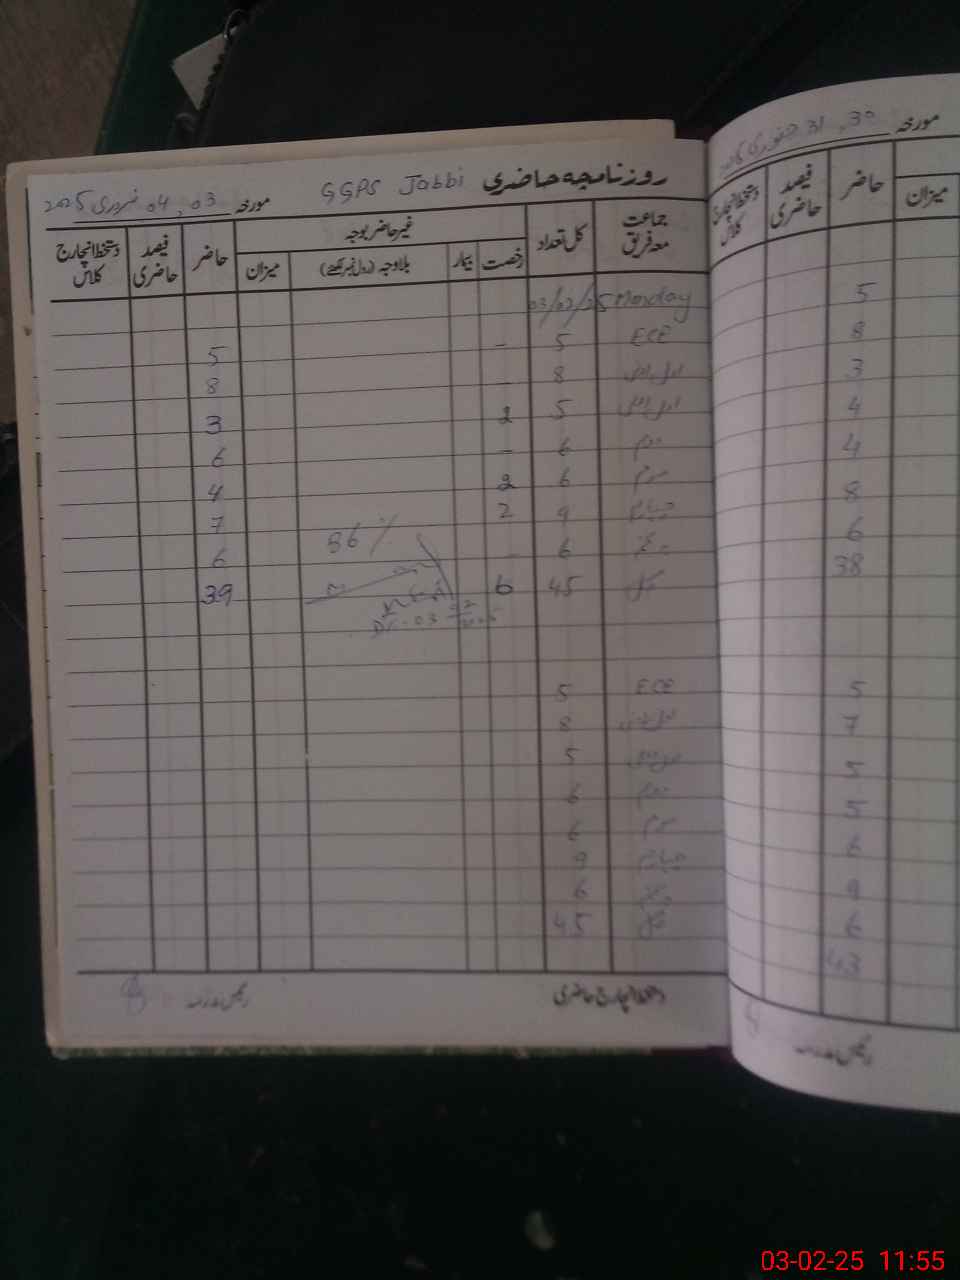 روزنامچہ حاضری GGPS Jabbi مورخہ 03, 04 فروری 2025
جماعت معہ فریق کل تعداد غیر حاضر بوجہ حاضر فیصد حاضری دستخط انچارج کلاس
رخصت بیمار بلاوجہ (رول نمبر لکھئے) میزان
Monday 03/02/25
ECE 5 - 5
8 - 8
5 2 3
دوم 6 - 6
سوم 6 2 4
چہارم 9 2 7
پنجم 6 - 6
86 %
کل 45 6 39
ECE 5
8
5
دوم 6
سوم 6
چہارم 9
پنجم 6
کل 45
دستخط انچارج حاضری رئیس مدرسہ
مورخہ 30, 31 جنوری
میزان حاضر فیصد حاضری دستخط انچارج کلاس
5
8
3
4
4
8
6
38
5
7
5
5
6
9
6
43
رئیس مدرسہ
03-02-25 11:55